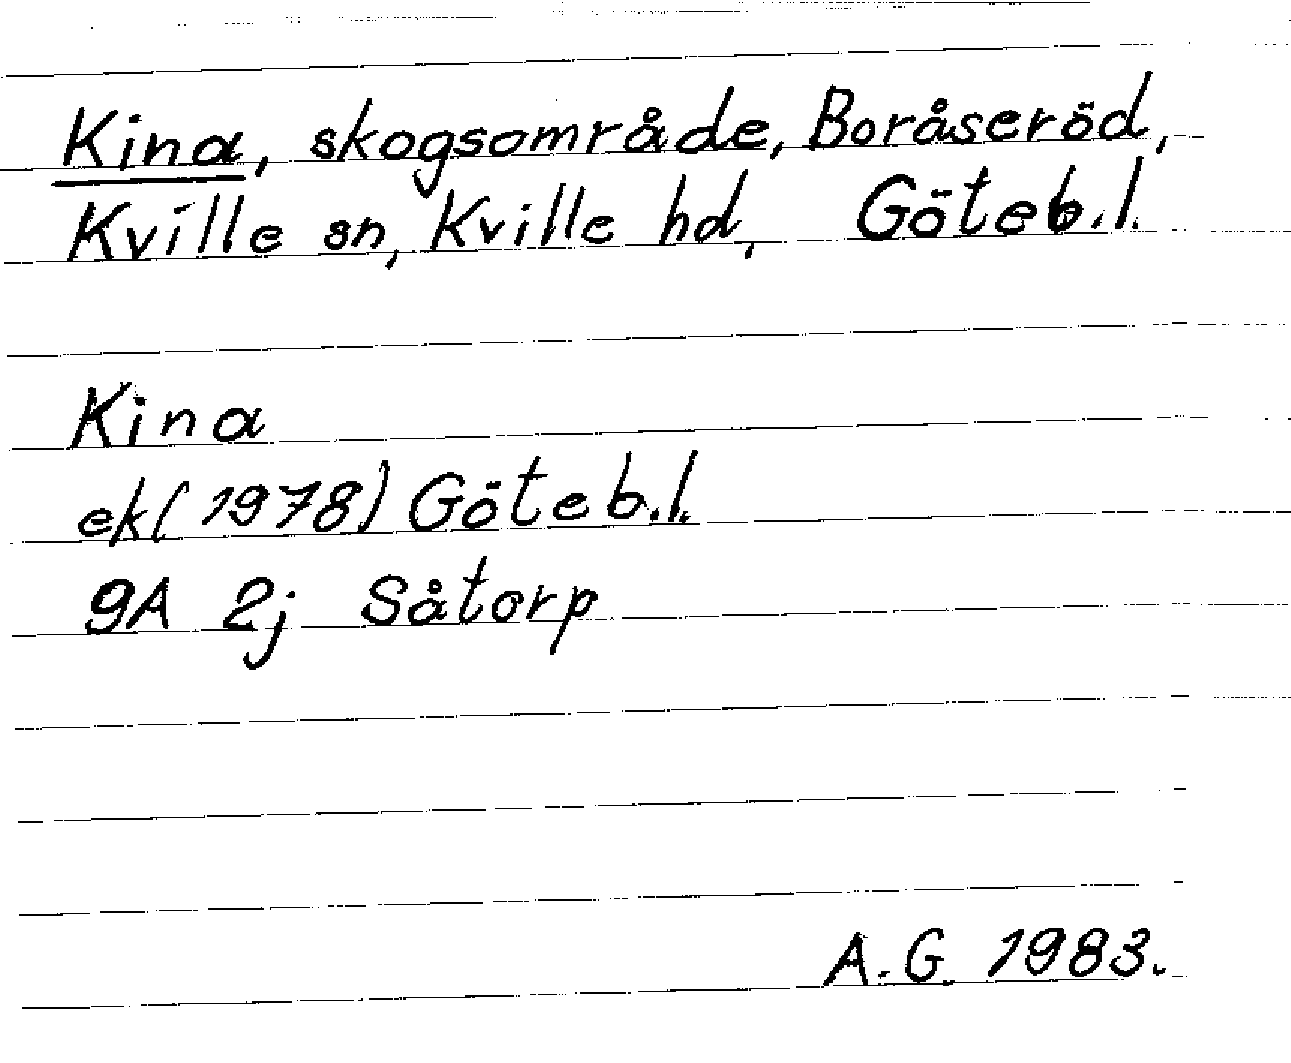 Kina, skogsområde, Boråseröd,
Kville sn, Kville hd, Göteb.l.
Kina
ek(1978) Göteb.l.
9A 2j Såtorp
A.G. 1983.